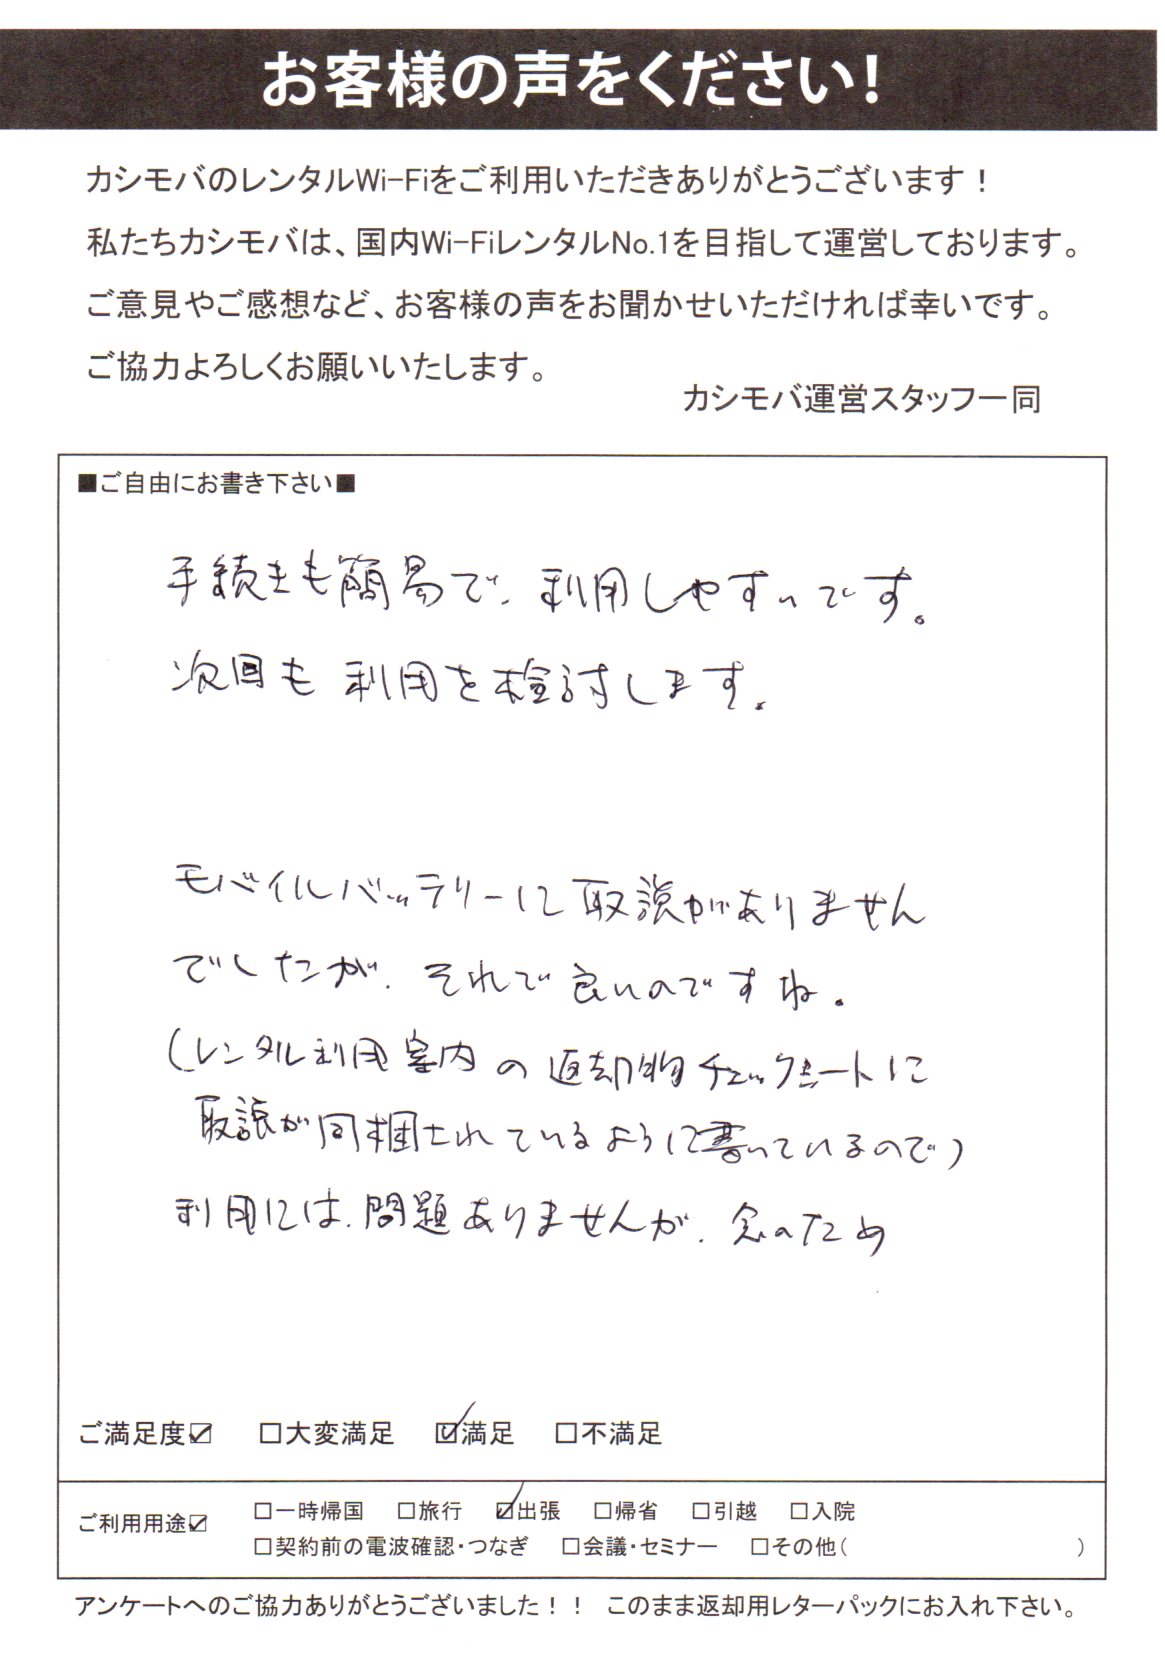 お客様の声をください!
カシモバのレンタルWi-Fiをご利用いただきありがとうございます！
私たちカシモバは、国内Wi-FiレンタルNo.1を目指して運営しております。
ご意見やご感想など、お客様の声をお聞かせいただければ幸いです。
ご協力よろしくお願いいたします。
カシモバ運営スタッフ一同
■ご自由にお書き下さい■
手続きも簡易で、利用しやすいです。
次回も利用を検討します。
モバイルバッテリーに取説がありません
でしたが、それで良いのですね。
(レンタル利用案内の返却物チェックシートに
取説が同梱されているように書いているので)
利用には、問題ありませんが、念のため
ご満足度☑ □大変満足 ☑満足 □不満足
ご利用用途☑ □一時帰国 □旅行 ☑出張 □帰省 □引越 □入院
□契約前の電波確認・つなぎ □会議・セミナー □その他( )
アンケートへのご協力ありがとうございました！！ このまま返却用レターパックにお入れ下さい。